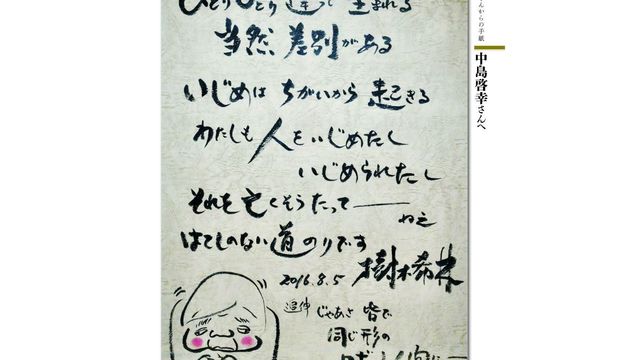 ひとりひとり違って生まれる
当然、差別がある
いじめは ちがいから 起きる
わたしも 人をいじめたし
いじめられたし
それを亡くそうたって――
ねえ
はてしのない道のりです
樹木希林
2016.8.5
追伸 じゃあさ 皆で
同じ形の
さんからの手紙
中島啓幸さんへ